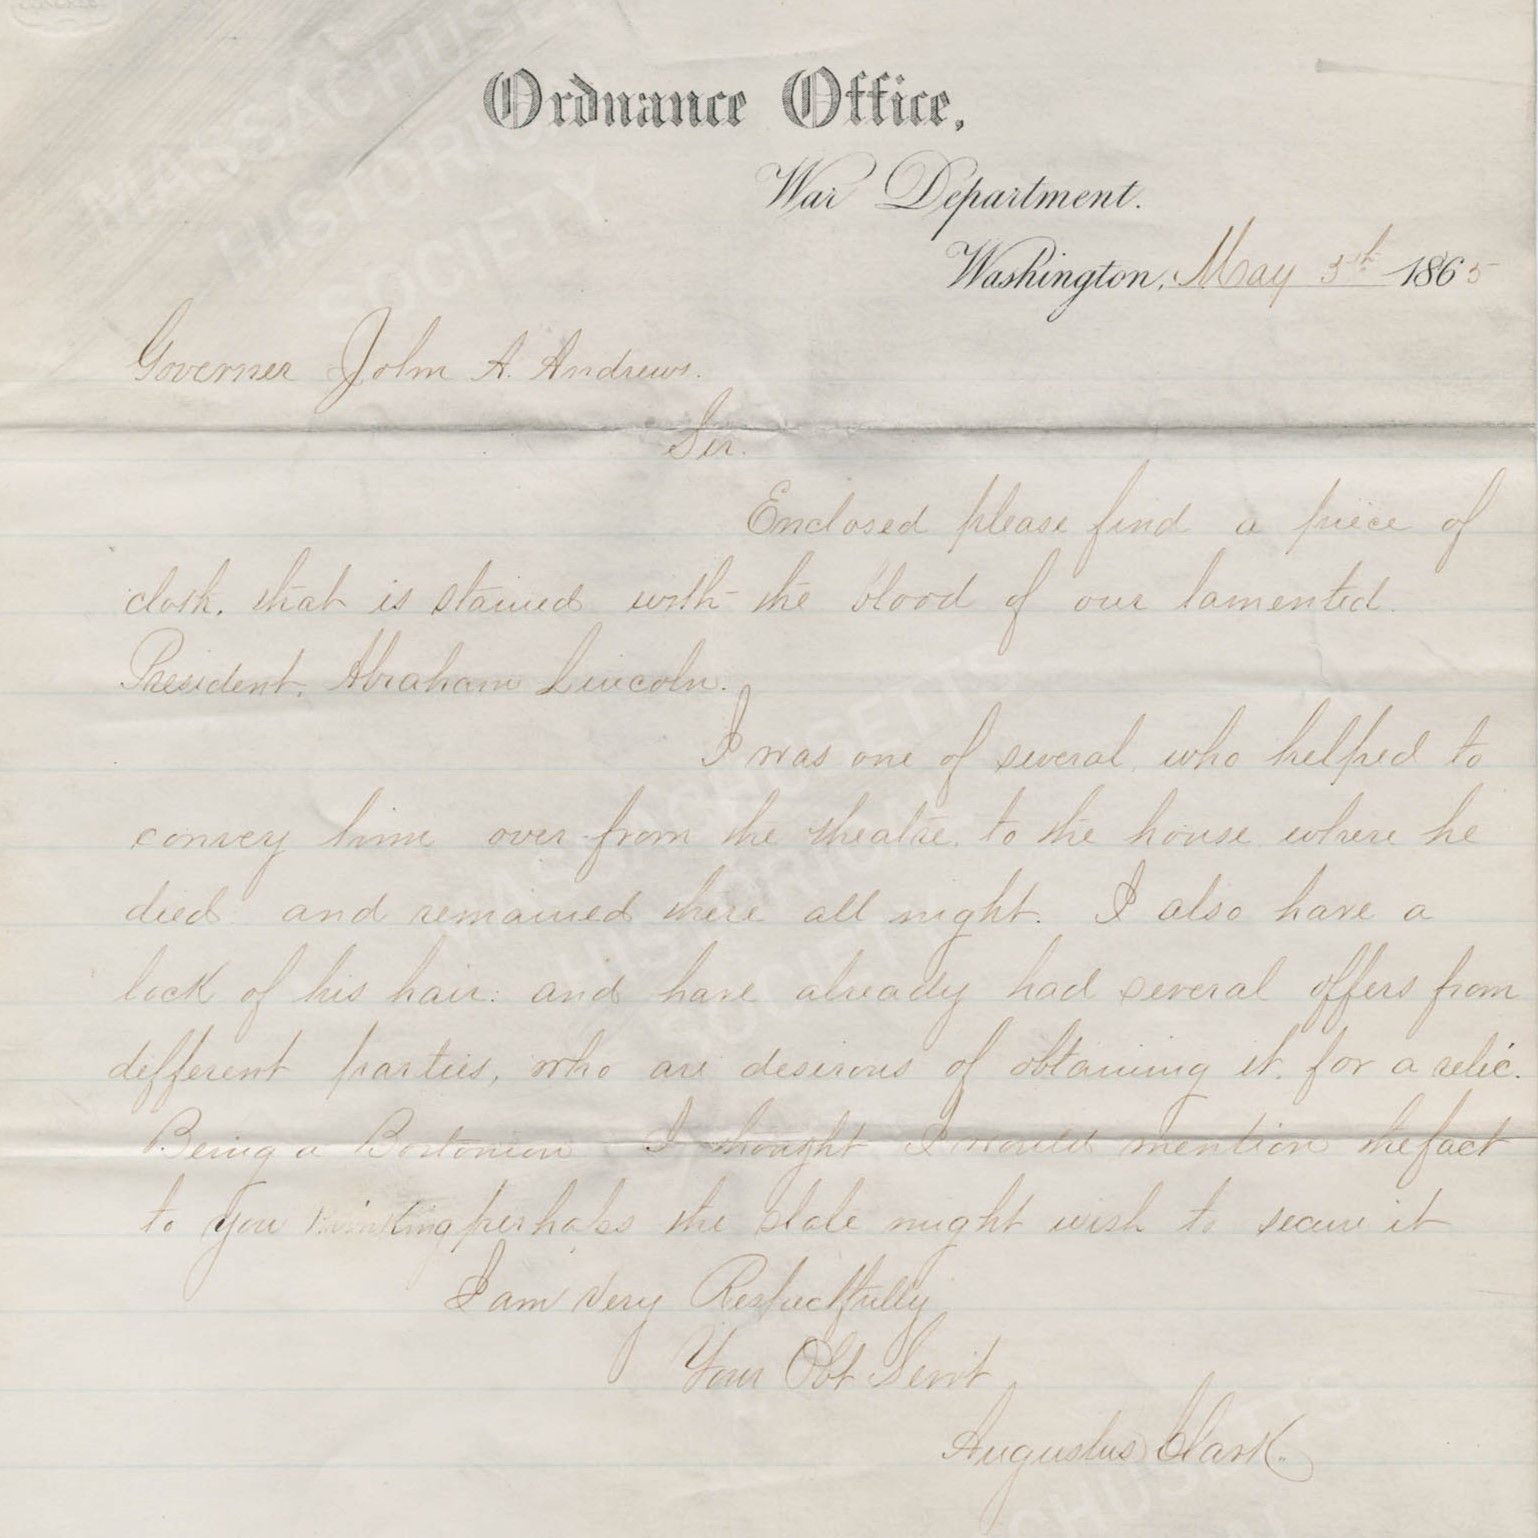 Ordnance Office,
War Department.
Washington, May 5th 1865
Governer John A. Andrews.
Sir.
Enclosed please find a piece of
cloth, that is stained with the blood of our lamented.
President, Abraham Lincoln.
I was one of several, who helped to
convey him over from the theatre, to the house where he
died: and remained there all night. I also have a
lock of his hair: and have already had several offers from
different parties, who are desirous of obtaining it, for a relic.
Being a Bostonian I thought I would mention the fact
to you thinking perhabs the state might wish to secure it
I am Very Respectfully
Your Obt Servt
Augustus Clark.
MASSACHUSETTS
HISTORICAL
SOCIETY
MASSACHUSETTS
HISTORICAL
SOCIETY